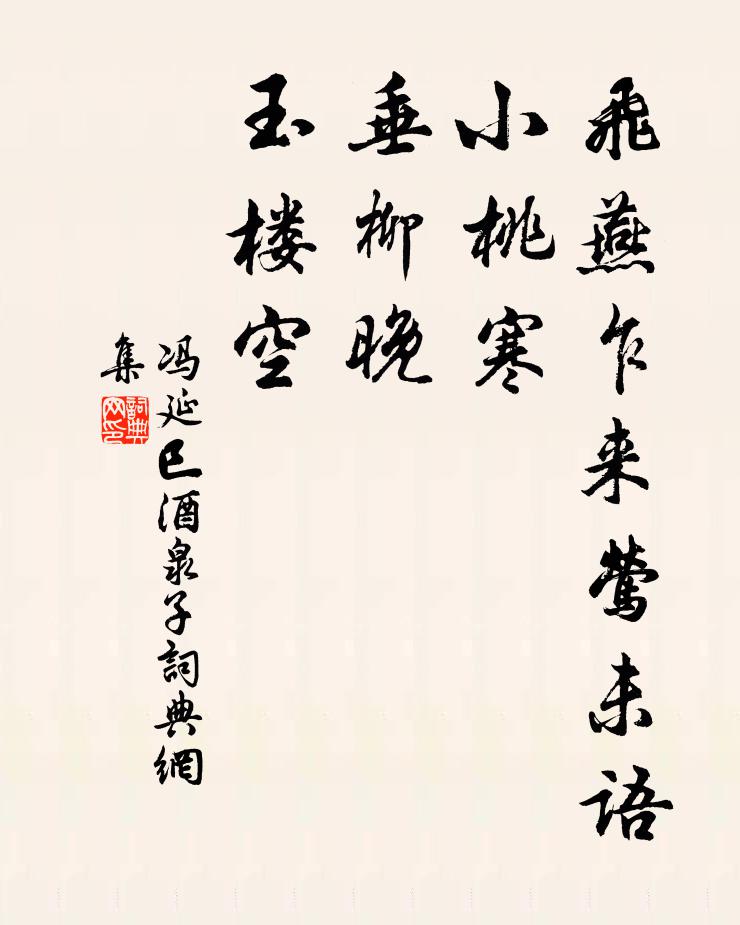 飛燕乍来莺未语
小桃寒
垂柳晚
玉楼空
冯延巳酒泉子詞典網
集
詞典网印